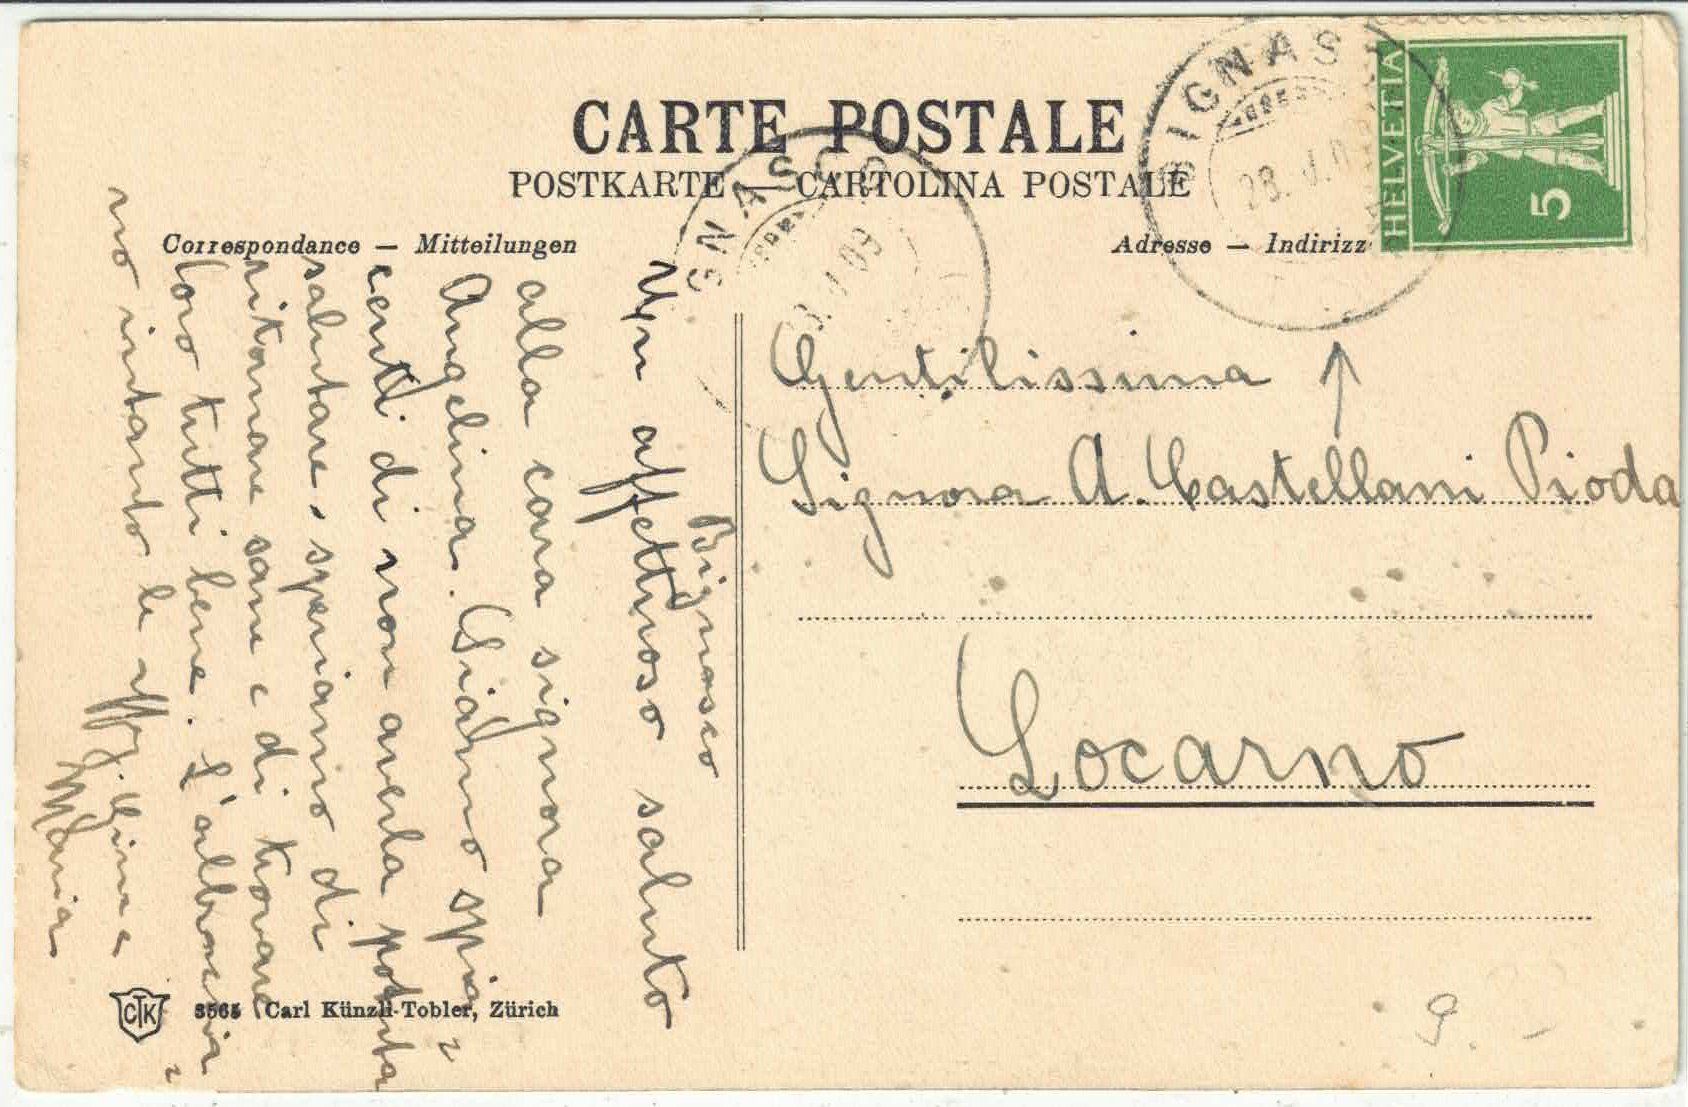 CARTE POSTALE
POSTKARTE — CARTOLINA POSTALE
Correspondance — Mitteilungen
Adresse — Indirizz
HELVETIA
5
BIGNASCO
28.
GNASCO
09
Bignasco
Un affettuoso saluto
alla cara signora
Angelina. Siamo spia=
centi di non averla potuta
salutare, speriamo di
ritornare sane e di trovare
loro tutti bene. L'abbraccia=
no intanto le aff. Gina e
Maria
Gentilissima
Signora A. Castellani Pioda
Locarno
CTK
3565 Carl Künzli-Tobler, Zürich
9.-